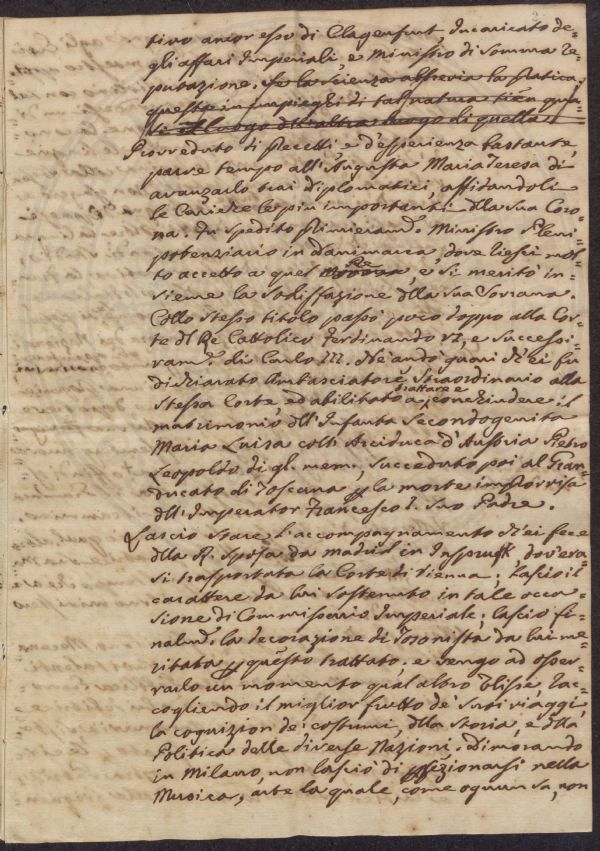 tivo ancor esso di Clagenfurt, Incaricato de-
gli affari Imperiali, e Ministro di somma re-
putazione. Se la scienza abbrevia la pratica,
questa in impieghi di tal natura tien qua-
si il luogo dell'altra luogo di quella.
Provveduto di precetti e d'esperienza bastante,
parve tempo all'Augusta Maria Teresa di
avanzarlo trai diplomatici, affidandoli
le Cariche le più importanti dlla sua Coro-
na. Fu spedito primieramte. Ministro Pleni-
potenziario in Danimarca, dove riescì mol-
to accetto a quel Re, e si meritò in-
sieme la sodisfazione dlla sua Sovrana.
Collo stesso titolo passò poco doppo alla Cor-
te dl Re Cattolico Ferdinando VI, e successi-
vamte. di Carlo III. Nè andò guari ch'ei fu
dichiarato Ambasciatore Straordinario alla
stessa Corte ed abilitato a trattare e conchiudere il
matrimonio dll'Infanta Secondogenita
Maria Luisa coll'Arciduca d'Austria Pietro
Leopoldo di gl. mem., succeduto poi al Gran-
ducato di Toscana p la morte improvvisa
dll'Imperator Francesco I. suo Padre.
Lascio stare l'accompagnamento ch'ei fece
dlla R. Sposa da Madrid in Inspruck, dov'era-
si trasportata la Corte di Vienna; lascio il
carattere da lui sostenuto in tale occa-
sione di Commissario Imperiale; lascio fi-
nalmte. la decorazione di Tosonista da lui me-
ritata p questo trattato; e vengo ad osser-
varlo un momento qual altro Ulisse, rac-
cogliendo il miglior frutto de' suoi viaggi,
la cognizion de' costumi, dlla storia, e dlla
Politica delle diverse Nazioni. Dimorando
in Milano, non lasciò di pfezionarsi nella
Musica, arte la quale, come ognun sa, non